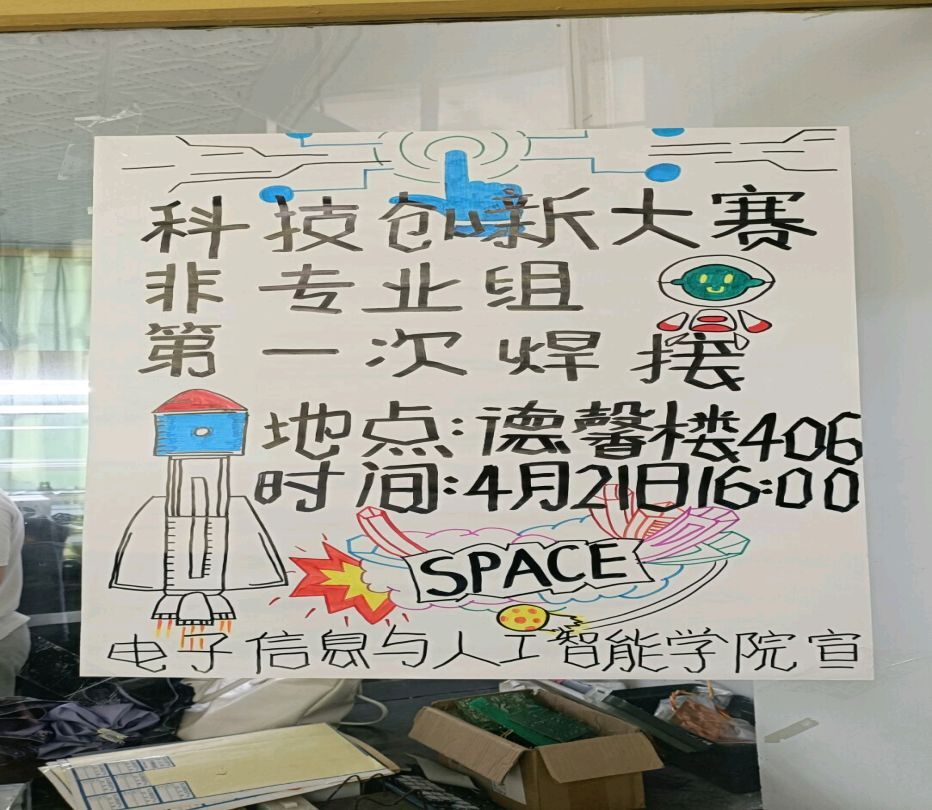 科技创新大赛
非专业组
第一次焊接
地点:德馨楼406
时间:4月21日16:00
SPACE
电子信息与人工智能学院宣